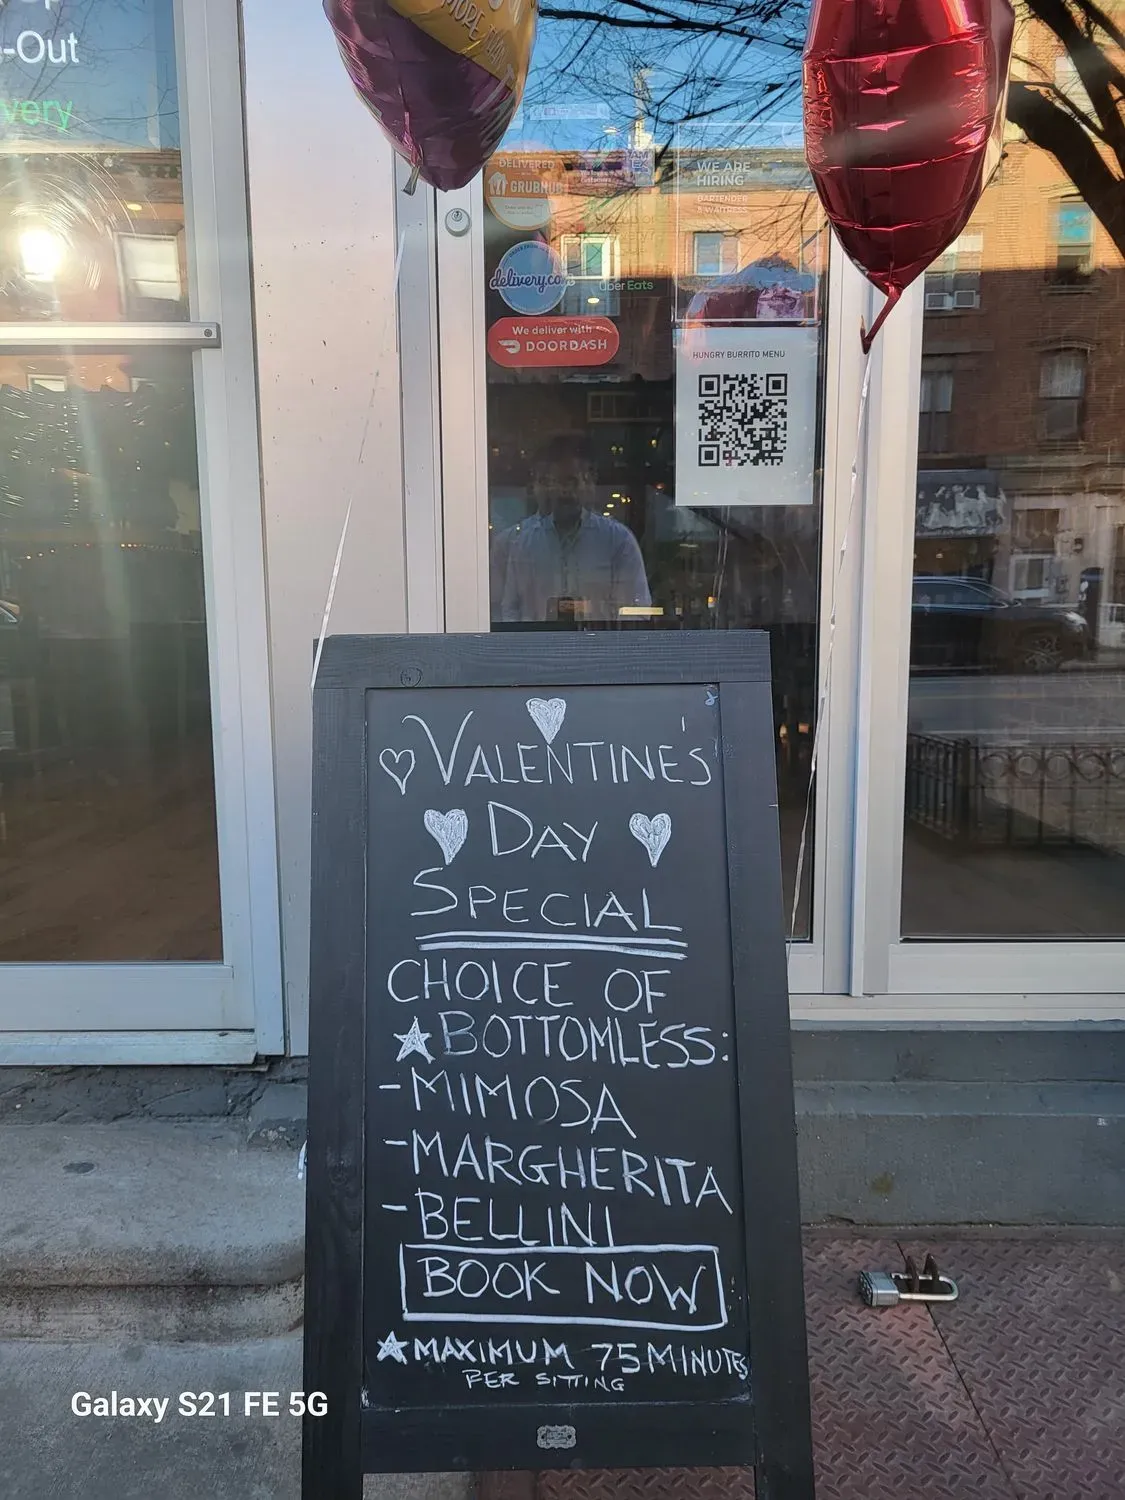 -Out
very
MORE THAN
DELIVERED
GRUBHUB
delivery.com
Uber Eats
We deliver with
DOORDASH
WE ARE
HIRING
BARTENDER
& WAITRESS
HUNGRY BURRITO MENU
VALENTINE'S
DAY
SPECIAL
CHOICE OF
BOTTOMLESS:
-MIMOSA
-MARGHERITA
-BELLINI
BOOK NOW
MAXIMUM 75 MINUTES
PER SITTING
Galaxy S21 FE 5G